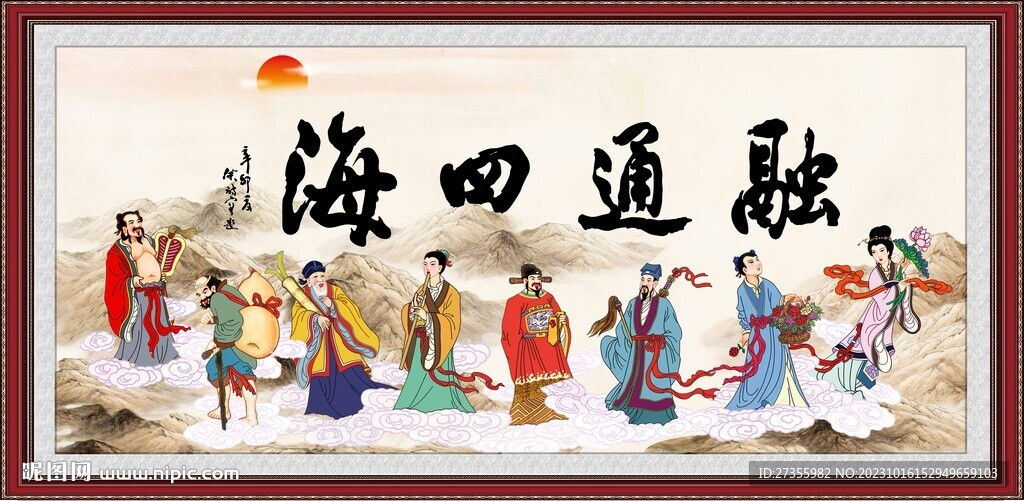 融通四海
辛卯夏
昵图网 www.nipic.com
ID:27355982 NO:20231016152949659103